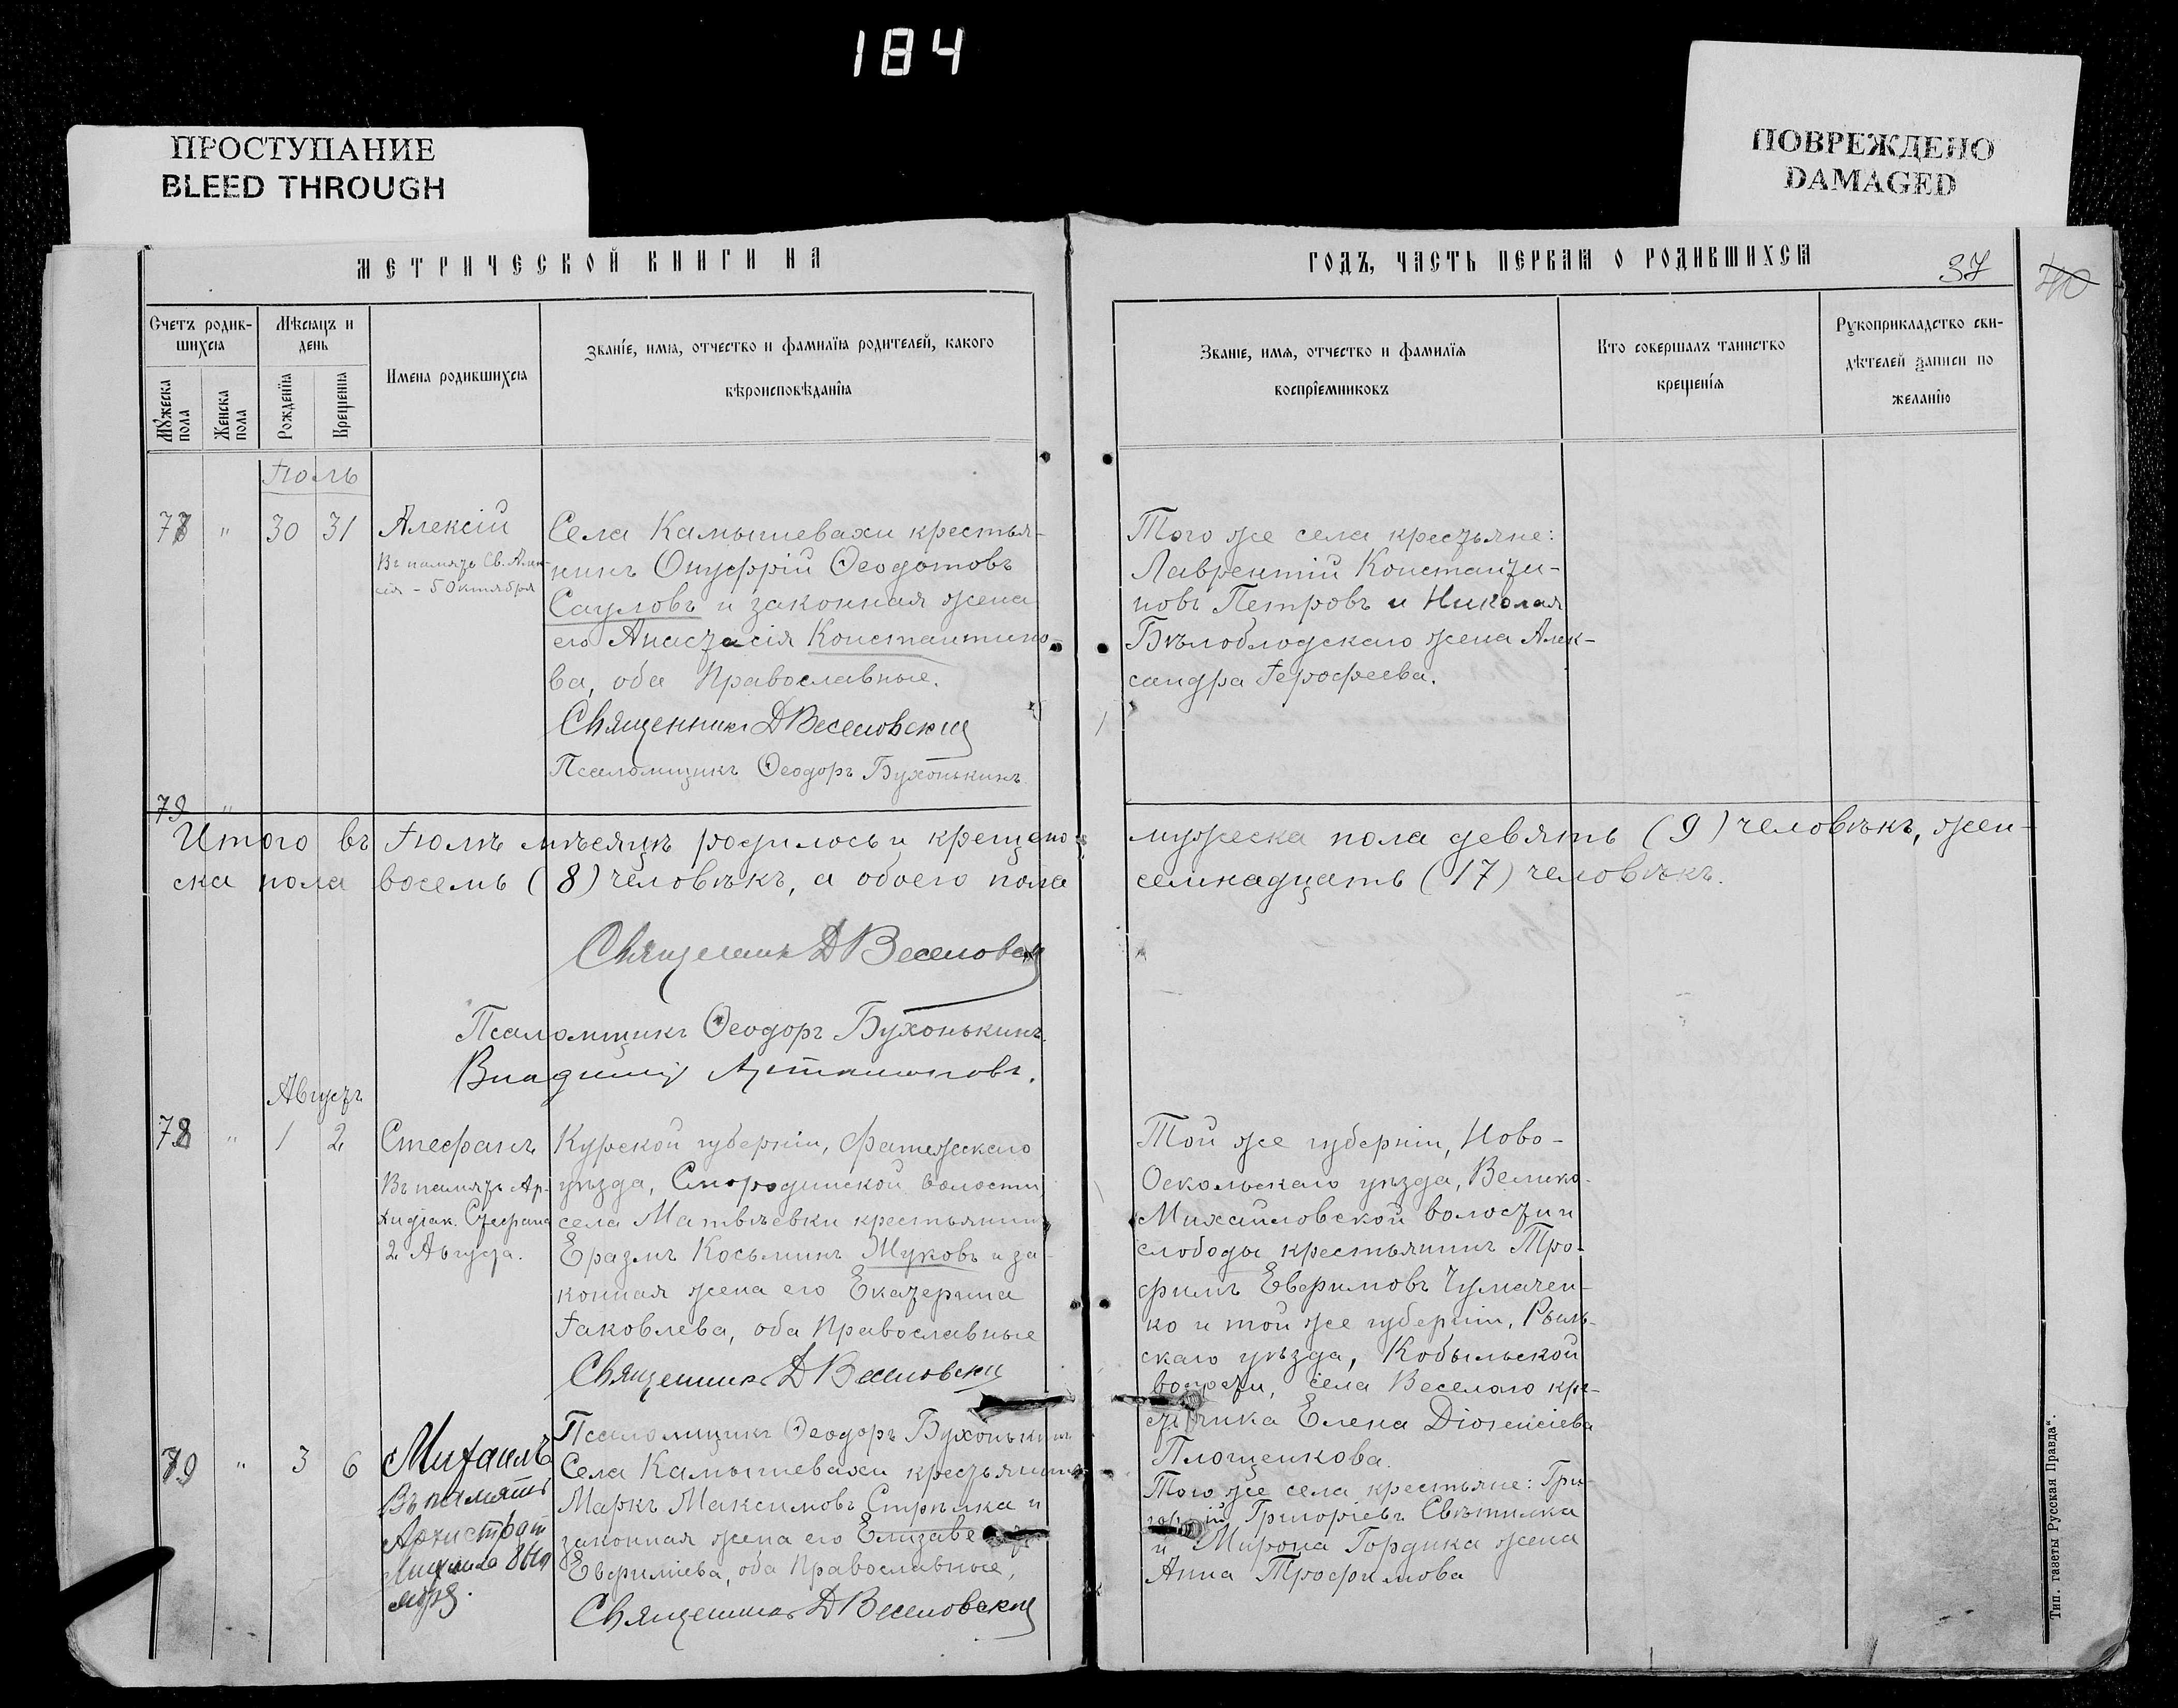 184
ПРОСТУПАНИЕ
BLEED THROUGH
ПОВРЕЖДЕНО
DAMAGED
МЕТРИЧЕСКОЙ КНИГИ НА
ГОДЪ, ЧАСТЬ ПЕРВАЯ О РОДИВШИХСЯ
37
40
Счетъ родив-
шихся
Мѣсяцъ и
день
Имена родившихся
Званіе, имя, отчество и фамилія родителей, какого
вѣроисповѣданія
Мужеска
пола
Женска
пола
Рожденія
Крещенія
Званіе, имя, отчество и фамилія
воспріемниковъ
Кто совершалъ таинство
крещенія
Рукоприкладство сви-
дѣтелей записи по
желанію
Іюль
" 30 31 Алексій
Въ память Св. Алек-
сія - 5 Октября
Села Камышевахи крестья-
нинъ Онуфрій Ѳеодотовъ
Сауловъ и законная жена
его Анастасія Константино-
ва, оба Православные.
Священникъ Д Веселовскій
Псаломщикъ Ѳеодоръ Бухонькинъ
Того же села крестьяне:
Лаврентій Константи-
новъ Петровъ и Николая
Бѣлоблодскаго жена Алек-
сандра Іерофеева.
79 "
Итого въ Іюлѣ мѣсяцѣ родилось и крещено мужеска пола девять (9) человѣкъ, жен-
ска пола восемь (8) человѣкъ, а обоего пола семнадцать (17) человѣкъ.
Священникъ Д Веселовскій
Псаломщикъ Ѳеодоръ Бухонькинъ.
Владиміръ
Августъ
78 " 1 2 Стефанъ
Въ память Ар-
хидіак. Стефана
2 Августа.
Курской губерніи, Фатежскаго
уѣзда, Смородинской волости
села Матвѣевки крестьянинъ
Еразмъ Косьминъ Жуковъ и за-
конная жена его Екатерина
Іаковлева, оба Православные
Священникъ Д Веселовскій
Псаломщикъ Ѳеодоръ Бухонькинъ
Той же губерніи, Ново-
Оскольскаго уѣзда, Велико-
Михайловской волости и
слободы крестьянинъ Тро-
фимъ Евфимовъ Чумачен-
ко и той же губерніи, Рыль-
скаго уѣзда, Кобыльской
волости, села Веселаго кре-
Елена Діонисіева
Площенкова.
79 " 3 6 Михаилъ
Въ память
Архистрат
Михаила 8 Но
ября.
Села Камышевахи крестьянинъ
Маркъ Максимовъ Стрѣлка и
законная жена его Елизаве
Евфиміева, оба Православные,
Священникъ Д Веселовскій
Того же села крестьяне: Гри-
горій Григоріевъ Свѣтилка
и Мирона Гордика жена
Анна Трофимова
Тип. газеты „Русская Правда".